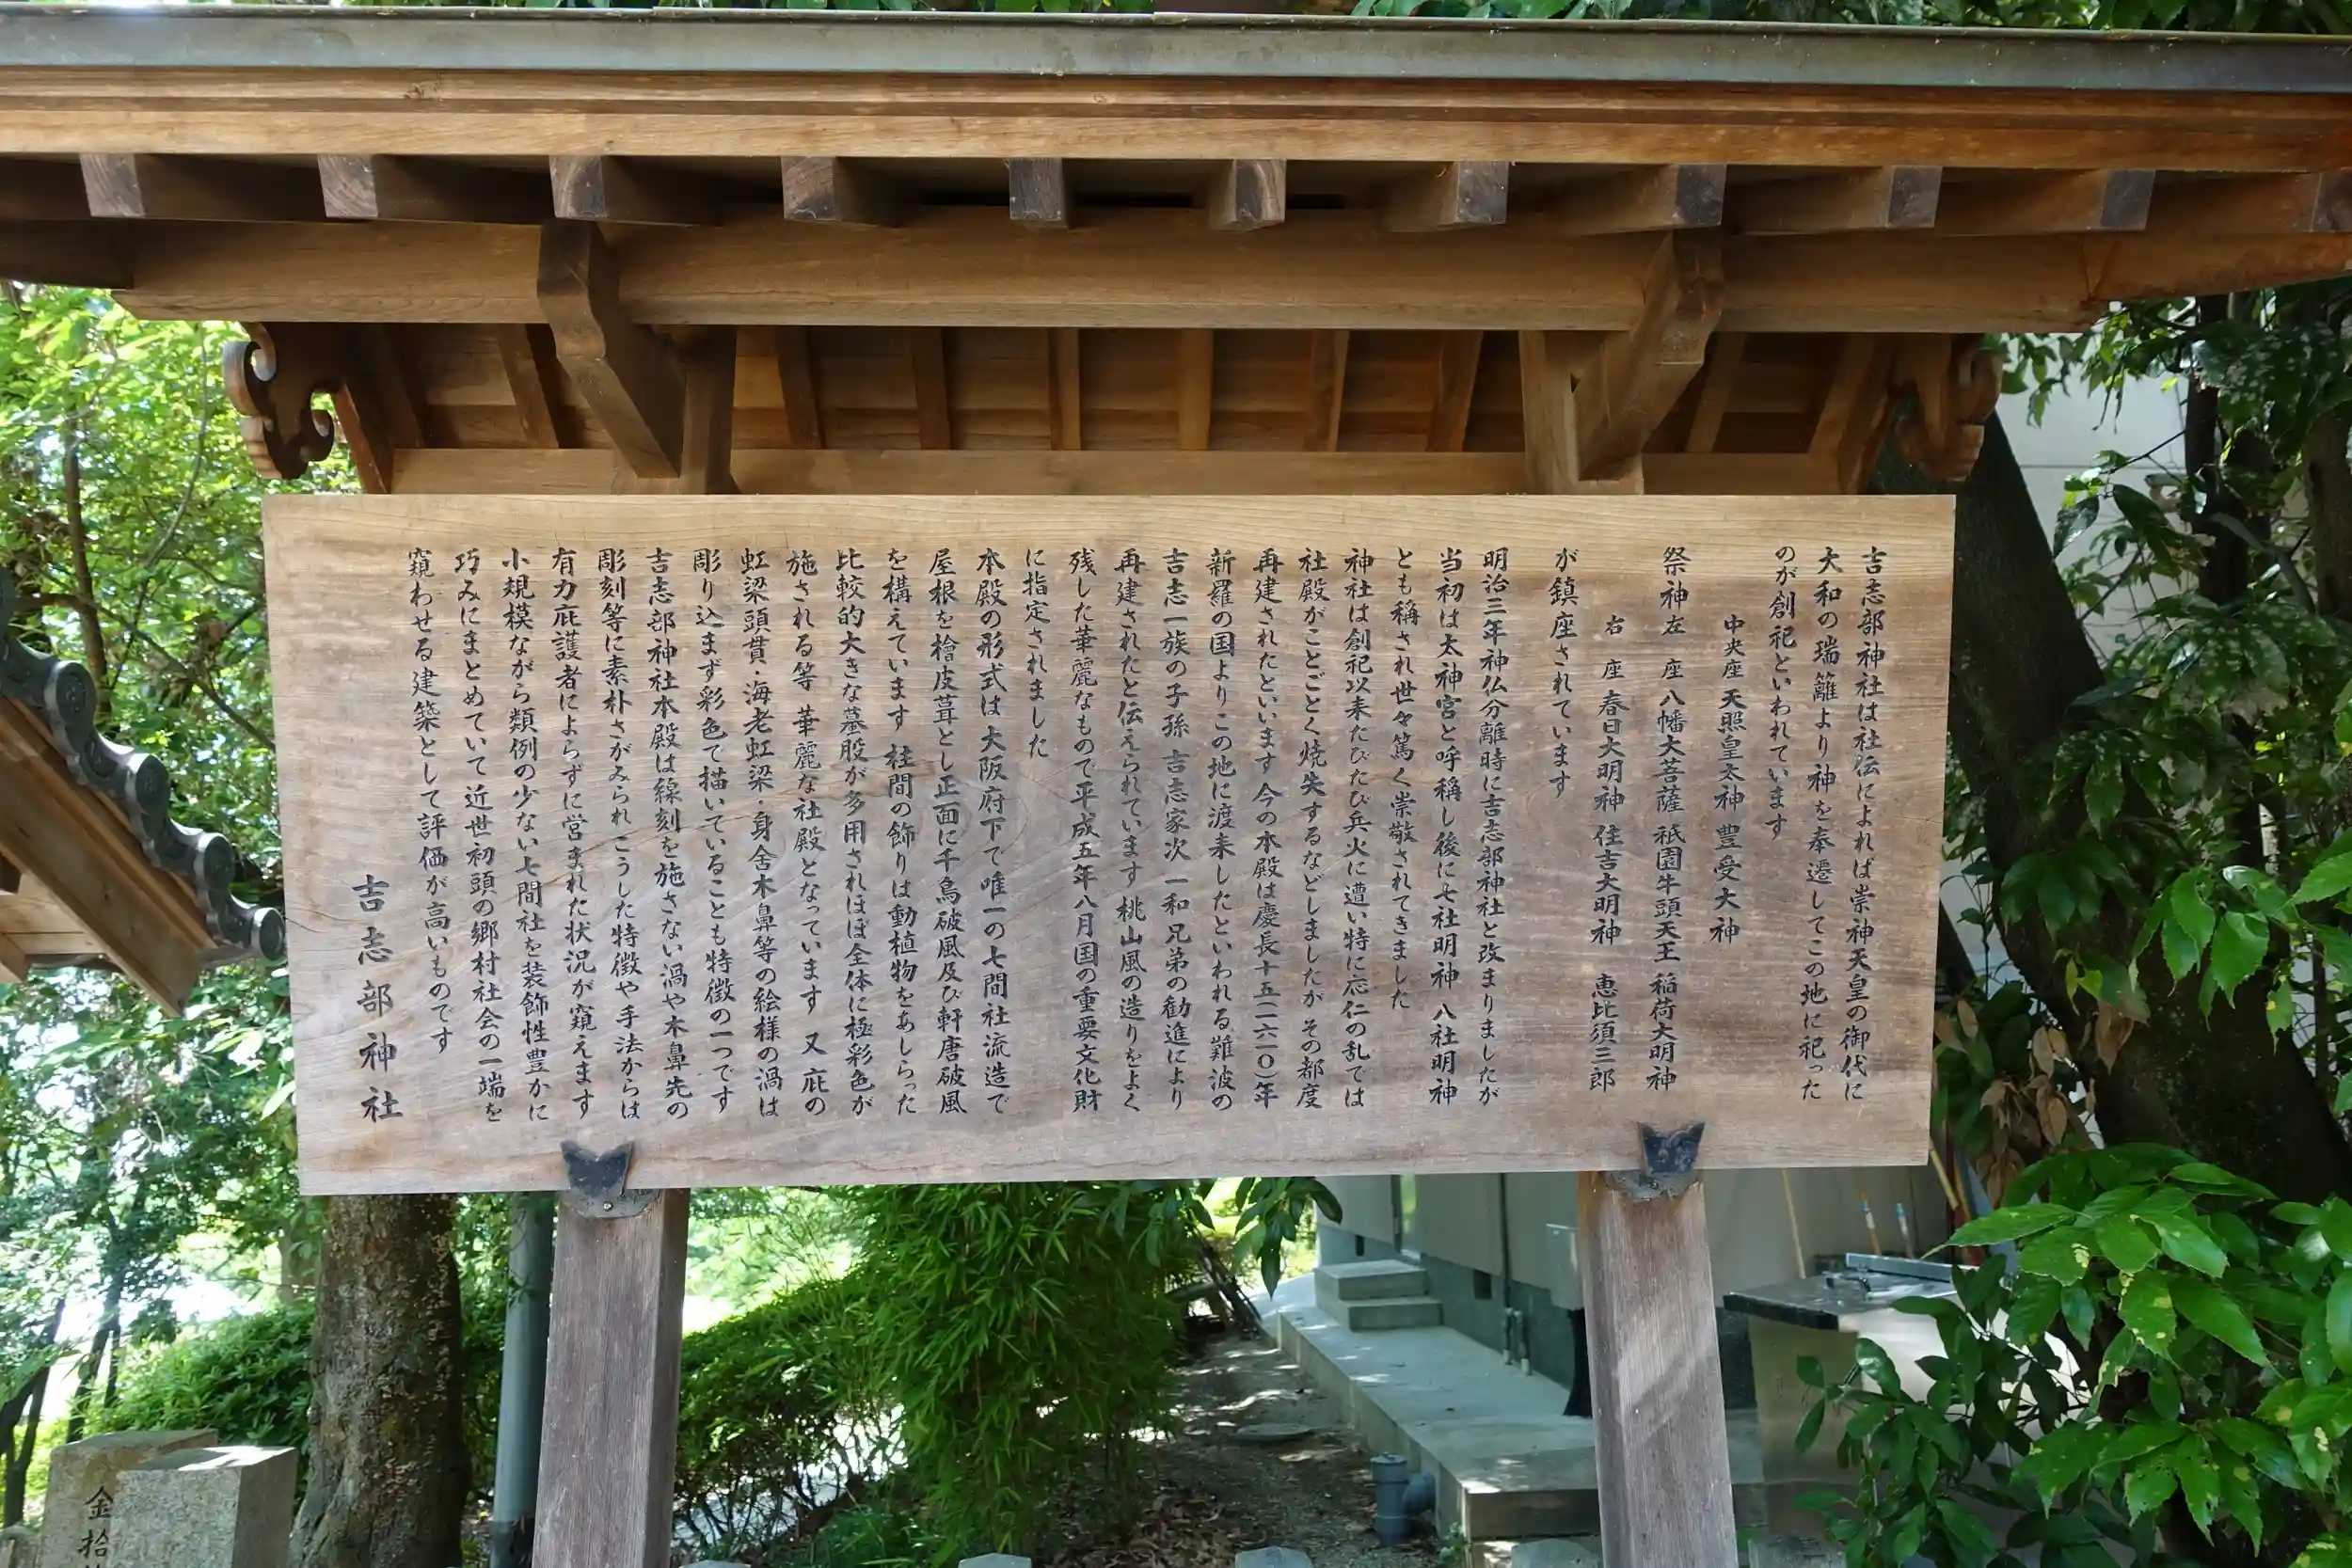 吉志部神社は社伝によれば崇神天皇の御代に
大和の瑞籬より神を奉遷してこの地に祀った
のが創祀といわれています
中央座 天照皇太神 豊受大神
祭神左 座 八幡大菩薩 祇園牛頭天王 稲荷大明神
右 座 春日大明神 住吉大明神 恵比須三郎
が鎮座されています
明治三年神仏分離時に吉志部神社と改まりましたが
当初は太神宮と呼称し後に七社明神 八社明神
とも稱され世々篤く崇敬されてきました
神社は創祀以来たびたび兵火に遭い特に応仁の乱では
社殿がことごとく焼失するなどしましたが その都度
再建されたといいます 今の本殿は慶長十五(一六一〇)年
新羅の国よりこの地に渡来したといわれる難波の
吉志一族の子孫 吉志家次 一和兄弟の勧進により
再建されたと伝えられています 桃山風の造りをよく
残した華麗なもので平成五年八月国の重要文化財
に指定されました
本殿の形式は大阪府下で唯一の七間社流造で
屋根を檜皮葺とし正面に千鳥破風及び軒唐破風
を構えています 柱間の飾りは動植物をあしらった
比較的大きな蟇股が多用されほぼ全体に極彩色が
施される等 華麗な社殿となっています 又 庇の
虹梁頭貫・海老虹梁・身舎木鼻等の絵様の渦は
彫り込まず彩色で描いていることも特徴の一つです
吉志部神社本殿は線刻を施さない渦や木鼻先の
彫刻等に素朴さがみられ こうした特徴や手法からは
有力庇護者によらずに営まれた状況が窺えます
小規模ながら類例の少ない七間社を装飾性豊かに
巧みにまとめていて近世初頭の郷村社会の一端を
窺わせる建築として評価が高いものです
吉志部神社
金拾